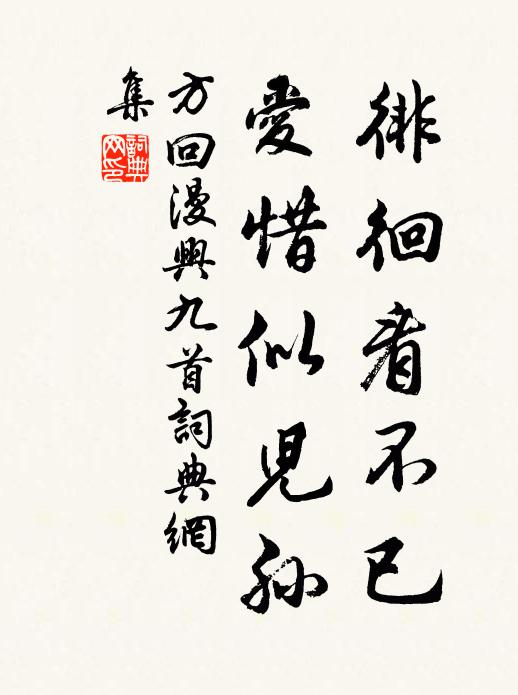 徘徊看不已
愛惜似兒孫
方回漫興九首詞典網
集
詞典
网印